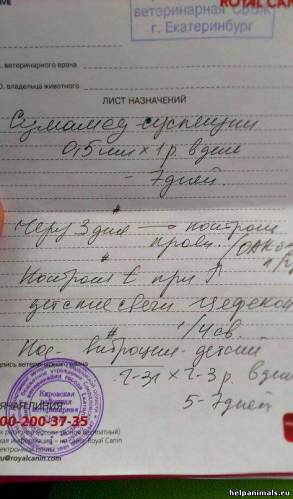 ROYAL CANIN
ветеринарная
г. Екатеринбург
. ветеринарного врача
О. владельца животного
ЛИСТ НАЗНАЧЕНИЙ
Сумамед суспензии
0,5 мл x 1 р. в день
- 7 дней.
Через 3 дня → контроль
крови. /ОАК
Контроль t при ↑
детские свечи Цефекон
1/4 св.
Нос - Виброцил детский
2-3к x 2-3 р. в день
5-7 дней
Кировская
ветеринарная
ЧАЯ ЛИНИЯ
00-200-37-35
u@royalcanin.com
helpanimals.ru